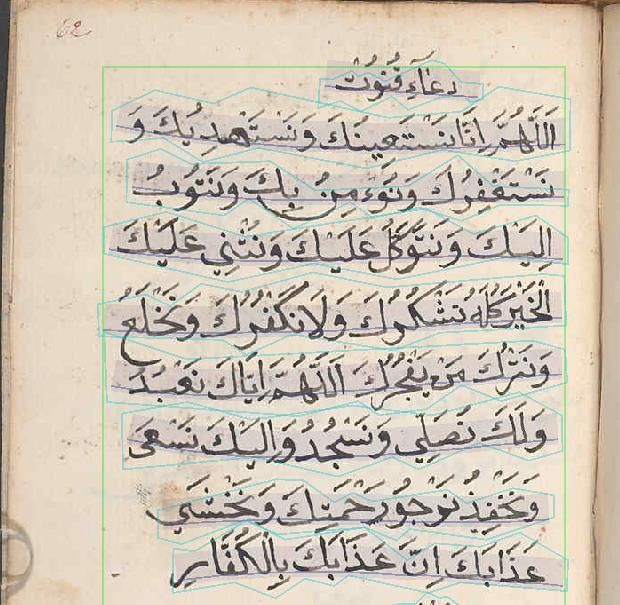 62
دعاءِ قُنُوْت
اَللّٰهُمَّ اِنَّا نَسْتَعِينُكَ وَنَسْتَهْدِيْكَ وَ
نَسْتَغْفِرُكَ وَنُؤْمِنُ بِكَ وَنَتُوْبُ
اِلَيْكَ وَنَتَوَكَّلُ عَلَيْكَ وَنُثْنِي عَلَيْكَ
الْخَيْرَ كُلَّهُ نَشْكُرُكَ وَلَا نَكْفُرُكَ وَنَخْلَعُ
وَنَتْرُكَ مَنْ يَفْجُرُكَ اَللّٰهُمَّ اِيَّاكَ نَعْبُدُ
وَلَكَ نُصَلِّي وَنَسْجُدُ وَاِلَيْكَ نَسْعَى
وَنَحْفِدُ نَرْجُو رَحْمَتِكَ وَنَخْشَي
عَذَابَكَ اِنَّ عَذَابَكَ بِالْكُفَّارِ